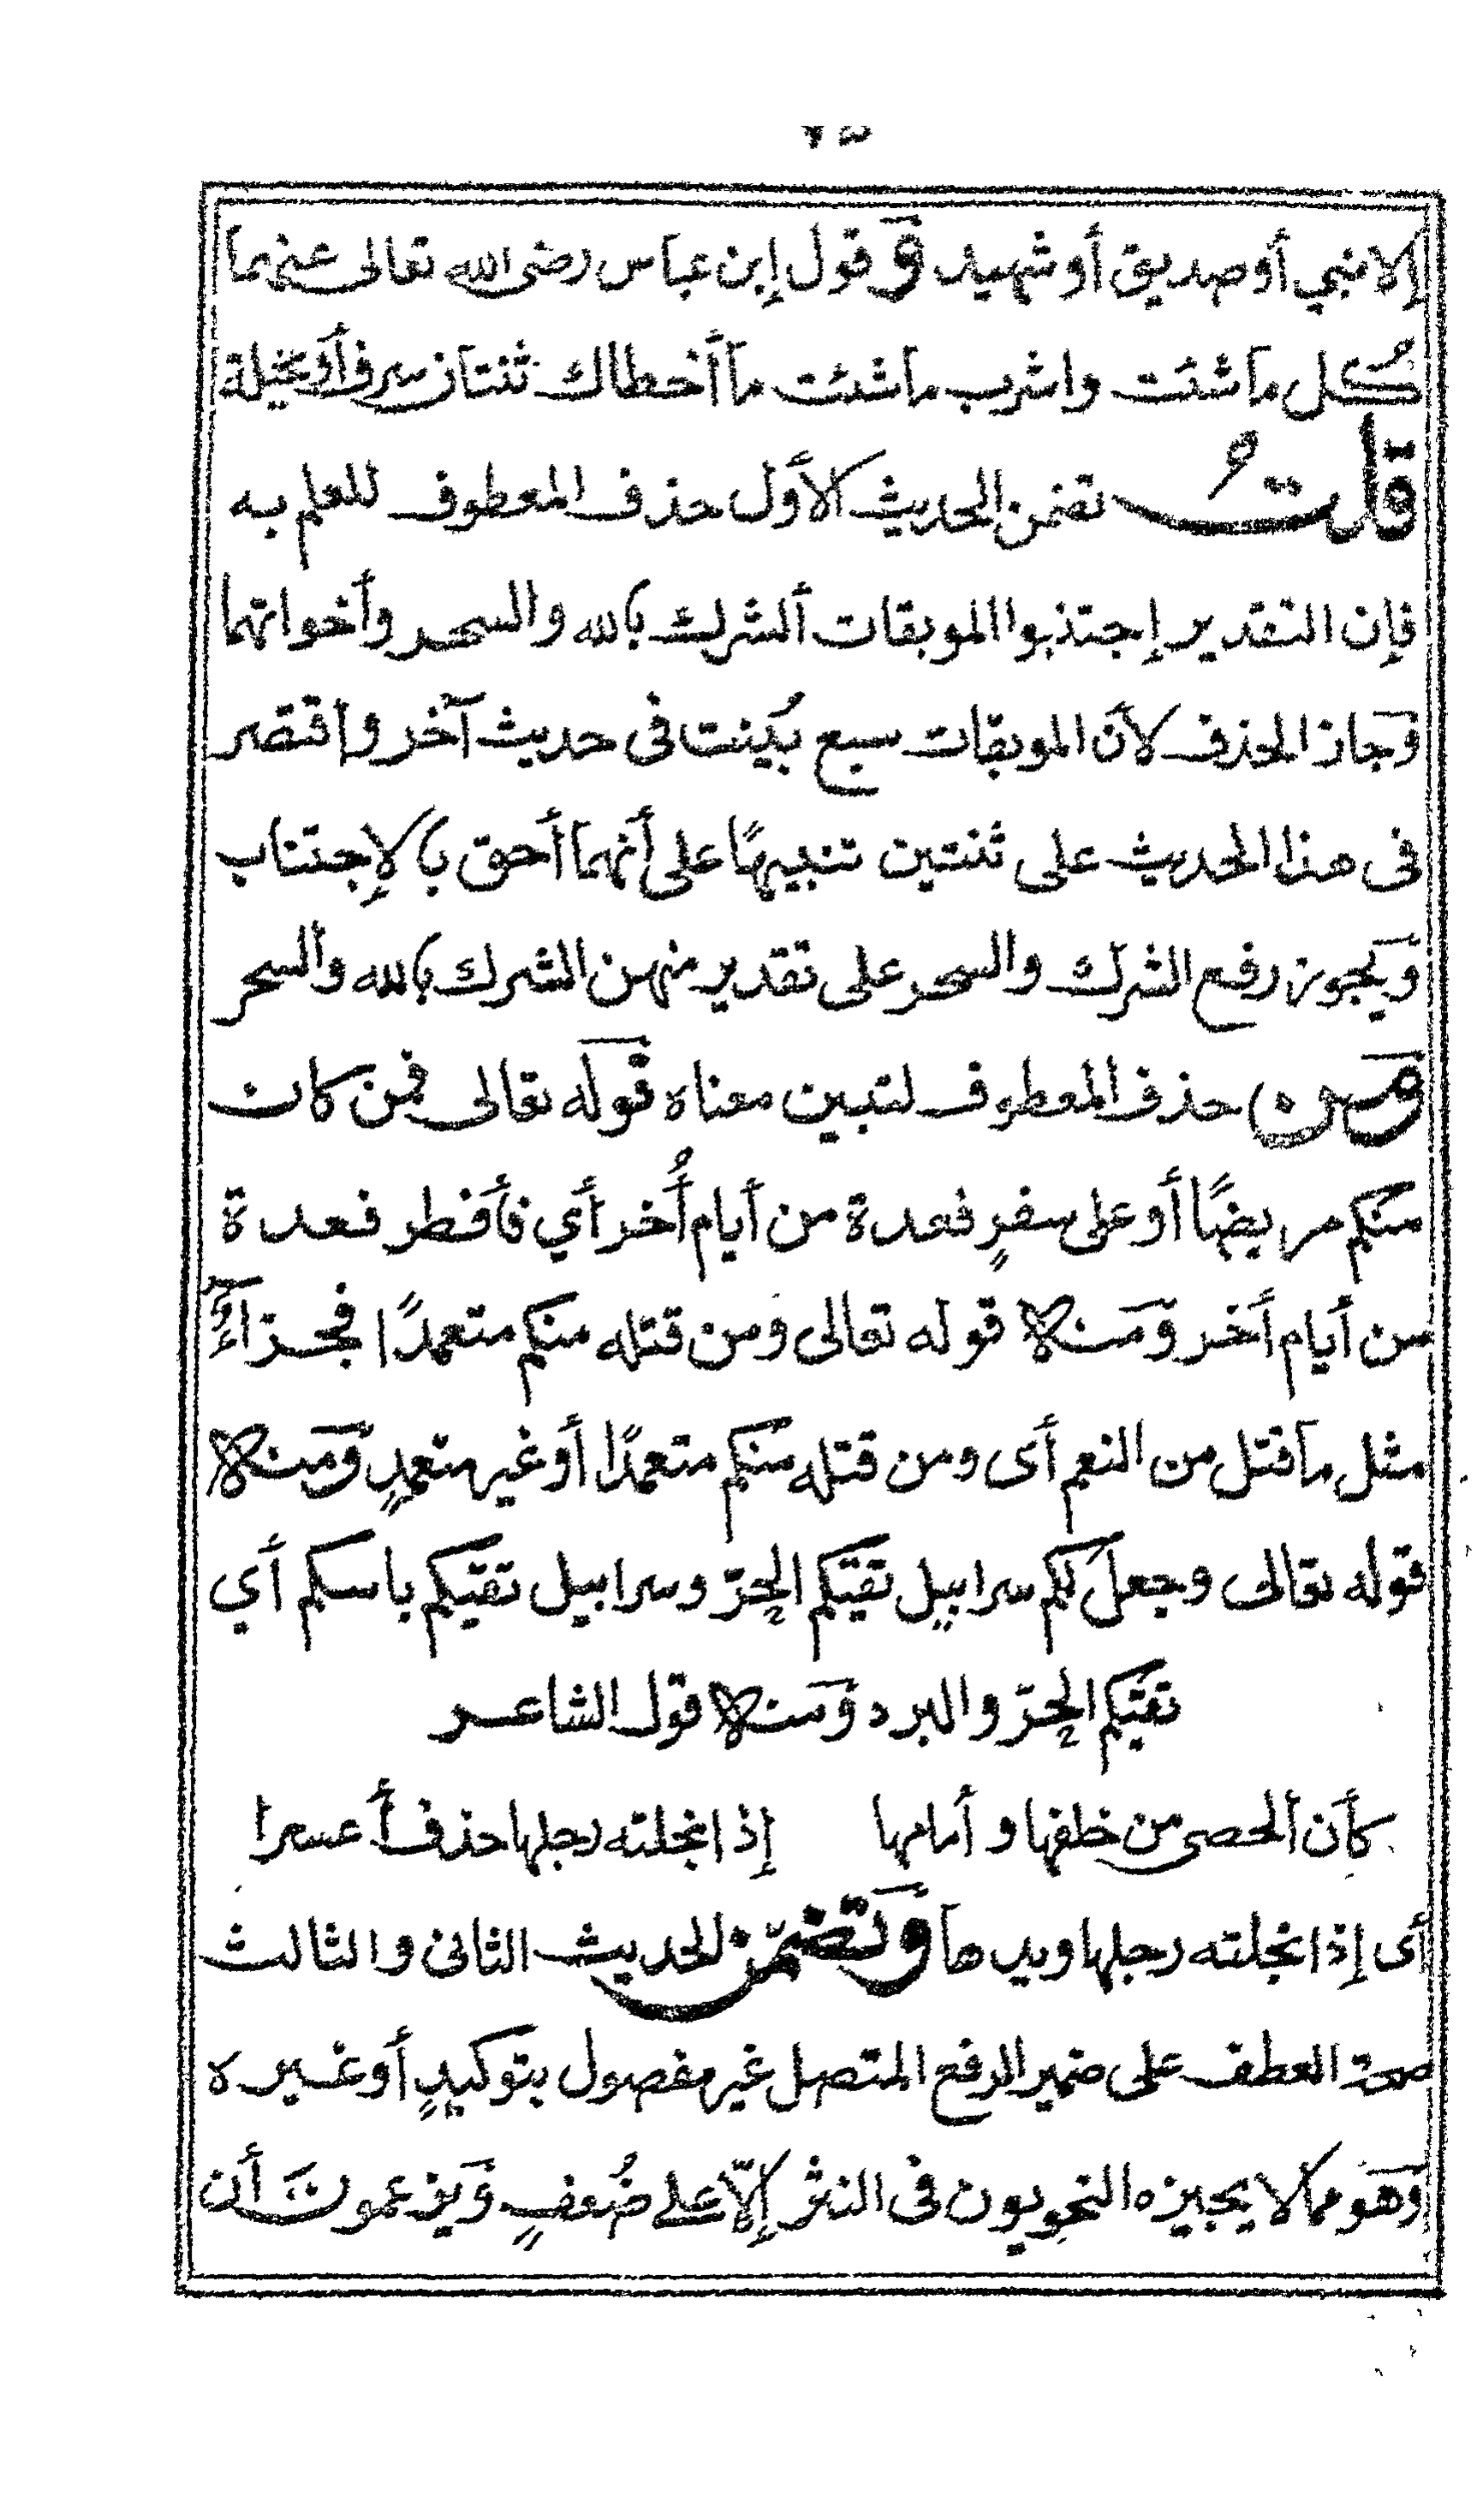 ٧٥
إلا نبي أو صديق أو شهيد وَفي قول إبن عباس رضى الله تعالى عنهما
كُل ما شئت واشرب ما شئت ما أخطاك ثنتان سرف أو مخيلة
قلتُ تضمن الحديث الأول حذف المعطوف للعلم به
فإن التقدير إجتنبوا الموبقات ألشرك بالله والسحر وأخواتهما
وَجاز الحذف لأن الموبقات سبع بُينت فى حديث آخر وإقتصر
فى هذا الحديث على ثنتين تنبيهًا على أنهما أحق بالإجتناب
وَيجوز رفع الشرك والسحر على تقدير منهن الشرك بالله والسحر
وَمن حذف المعطوف لتبين معناه قوله تعالى فمن كان
منكم مريضًا أو على سفرٍ فعدة من أيام أُخر أي فأفطر فعدة
من أيام أخر وَمنه قوله تعالى ومن قتله منكم متعمدًا فجزاءٌ
مثل ما قتل من النعم أى ومن قتله منكم متعمدًا أو غير متعمدٍ وَمنه
قوله تعالى وجعل لكم سرابيل تقيكم الحرّ وسرابيل تقيكم باسكم أي
تقيكم الحرّ والبرد وَمنه قول الشاعر
كأن ألحصى من خلفها وأمامها إذ انجلته رجلها حذف أعسرا
أى إذ انجلته رجلها ويدها وَتضمّن الحديث الثانى والثالث
صحة العطف على ضمير الرفع المتصل غير مفصول بتوكيدٍ أو غيره
وَهَو مما لا يجيزه النحويون فى النثر إلاّ على ضُعفٍ وَيزعمونَ أن